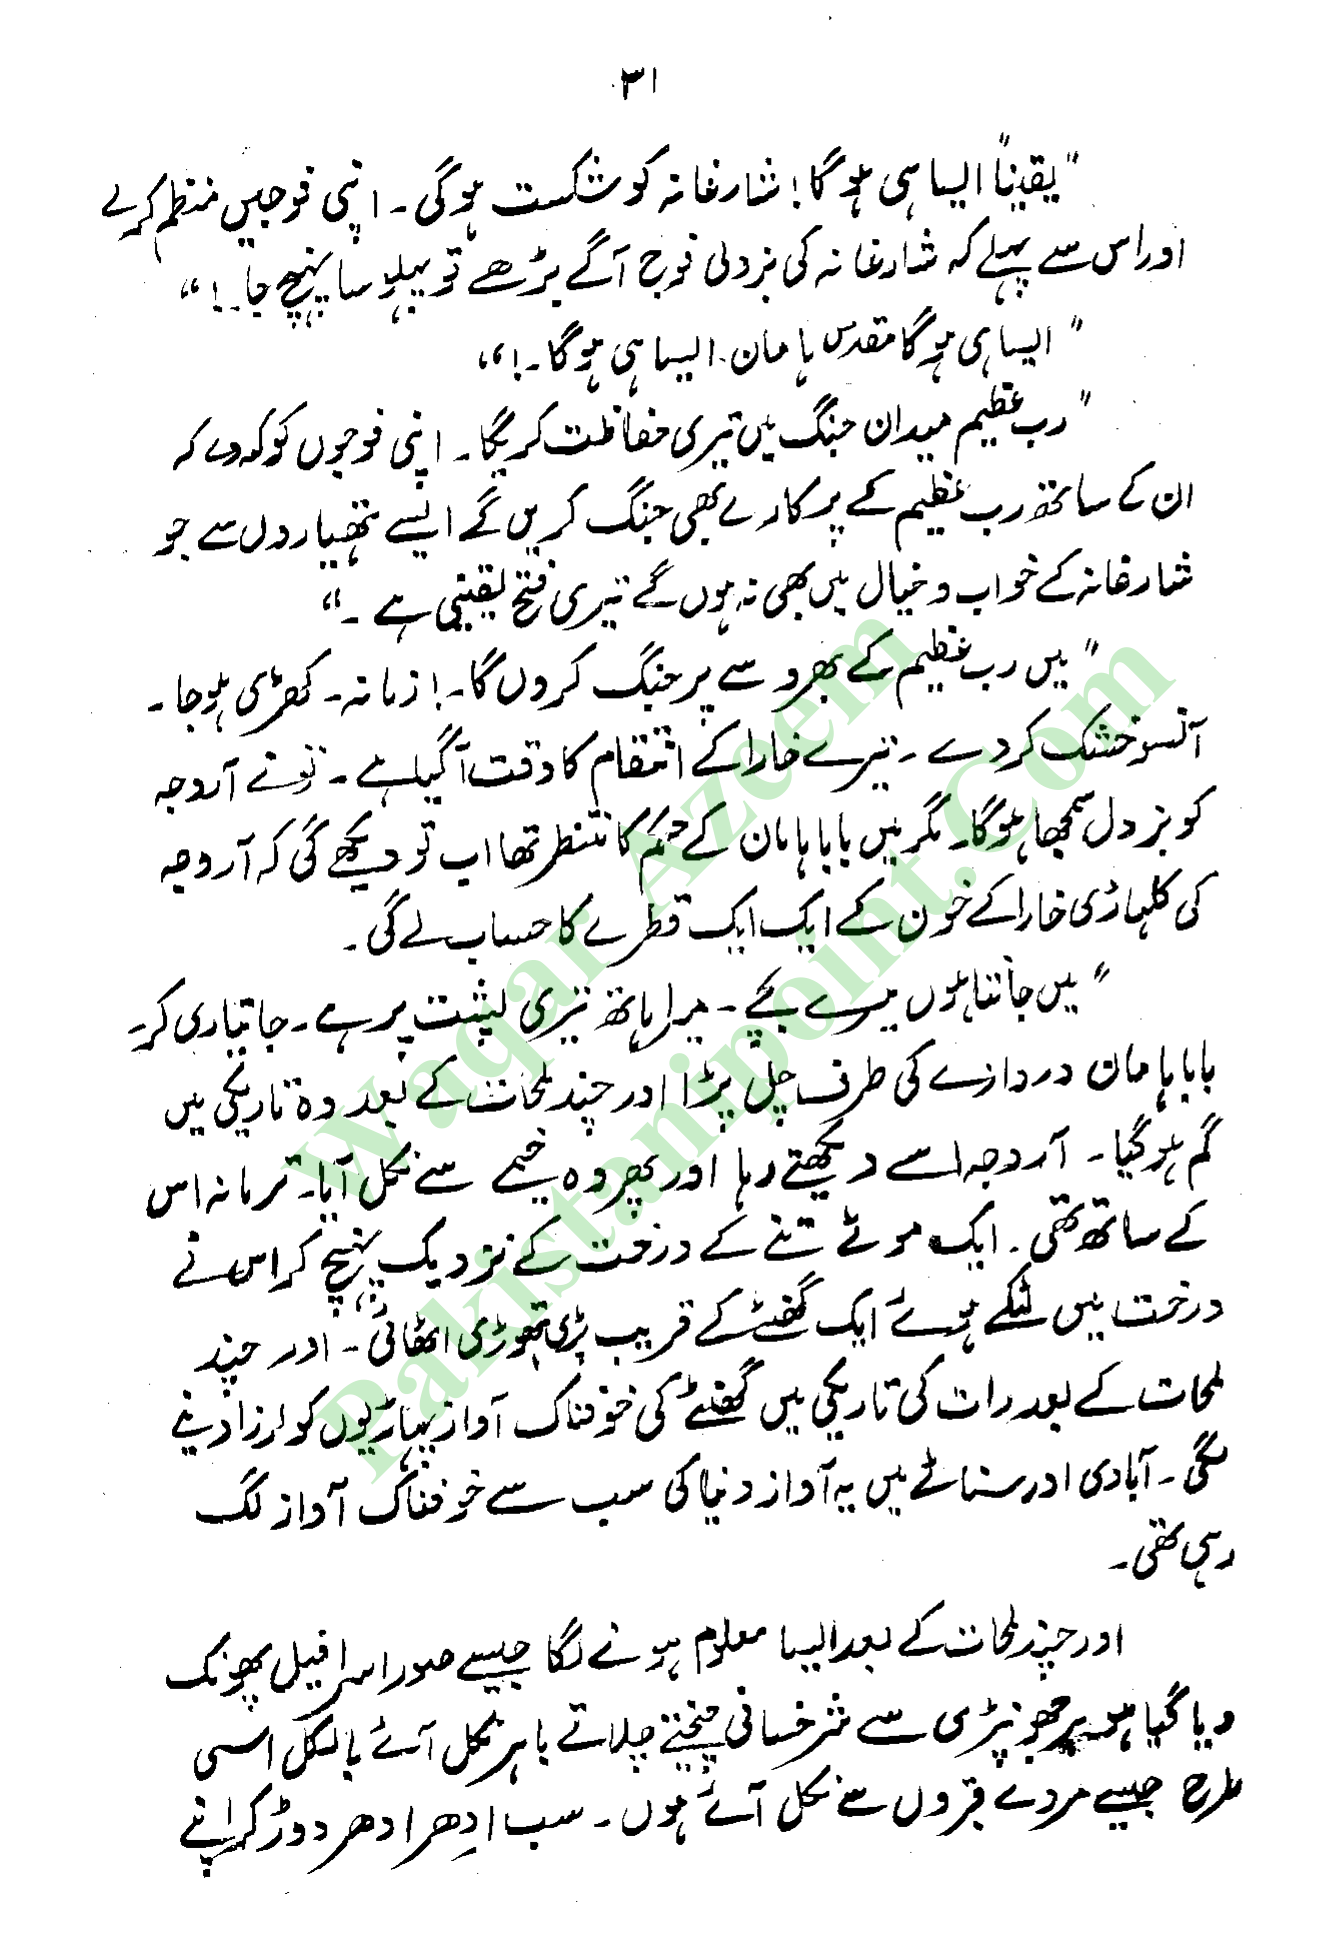 ۳۱
"یقیناً ایسا ہی ہو گا! شارغانہ کو شکست ہوگی۔ اپنی فوجیں منظم کر لے
اور اس سے پہلے کہ شارغانہ کی بزدلی فوج آگے بڑھے تو پہلو سا پہنچ جا۔!"
"ایسا ہی ہو گا مقدس ہامان۔ ایسا ہی ہو گا۔!"
"رب عظیم میدان جنگ میں تیری حفاظت کریگا۔ اپنی فوجوں کو کہہ دے کہ
ان کے ساتھ رب عظیم کے ہرکارے بھی جنگ کریں گے ایسے ہتھیاروں سے جو
شارغانہ کے خواب و خیال میں بھی نہ ہوں گے تیری فتح یقینی ہے۔"
"میں رب عظیم کے بھروسے پر جنگ کروں گا۔! زمانہ۔ کھڑی ہو جا۔
آنسو خشک کر دے۔ تیرے خارا کے انتقام کا وقت آ گیا ہے۔ تو نے آروجہ
کو بزدل سمجھا ہو گا۔ مگر میں بابا ہامان کے حکم کا منتظر تھا اب تو دیکھے گی کہ آروجہ
کی کلہاڑی خارا کے خون کے ایک ایک قطرے کا حساب لے گی۔
"میں جانتا ہوں میرے بچے۔ میرا ہاتھ تیری پشت پر ہے۔ جا تیاری کر۔
بابا ہامان دروازے کی طرف چل پڑا اور چند لمحات کے بعد وہ تاریکی میں
گم ہو گیا۔ آروجہ اسے دیکھتے رہا اور پھر وہ خیمے سے نکل آیا۔ ترمانہ اس
کے ساتھ تھی۔ ایک موٹے تنے کے درخت کے نزدیک پہنچ کر اس نے
درخت میں لٹکے ہوئے ایک گھنٹے کے قریب پڑی ہتھوڑی اٹھائی۔ اور چند
لمحات کے بعد رات کی تاریکی میں گھنٹے کی خوفناک آواز پہاڑیوں کو لرزا دینے
لگی۔ آبادی اور سناٹے میں یہ آواز دنیا کی سب سے خوفناک آواز لگ
رہی تھی۔
اور چند لمحات کے بعد ایسا معلوم ہونے لگا جیسے صور اسرافیل پھونک
دیا گیا ہو۔ ہر جھونپڑی سے شرخسانی چیختے چلاتے باہر نکل آئے بالکل اسی
طرح جیسے مردے قبروں سے نکل آئے ہوں۔ سب ادھر ادھر دوڑ کر اپنے
Waqar Azeem
Pakistanipoint.Com